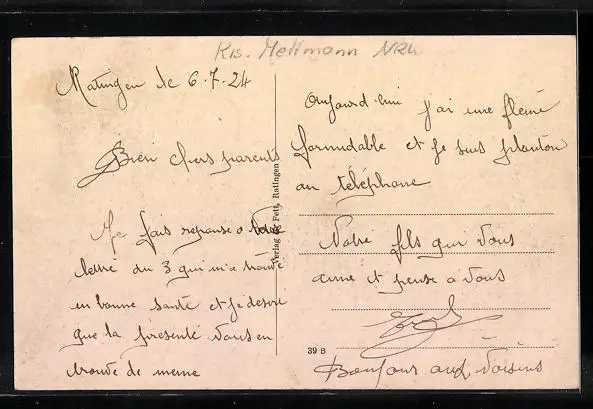 Krs. Mettmann NRW
Ratingen le 6-7-24
Bien chers parents
Je fais reponse a votre
lettre du 3 qui m'a trouvé
en bonne santé et je desire
que la presente vous en
trouve de meme
Verlag Fett, Ratingen
Aujourd'hui j'ai une fleme
formidable et je suis planton
au téléphone
Votre fils qui vous
aime et pense a vous
39 B
Bonjour aux voisins